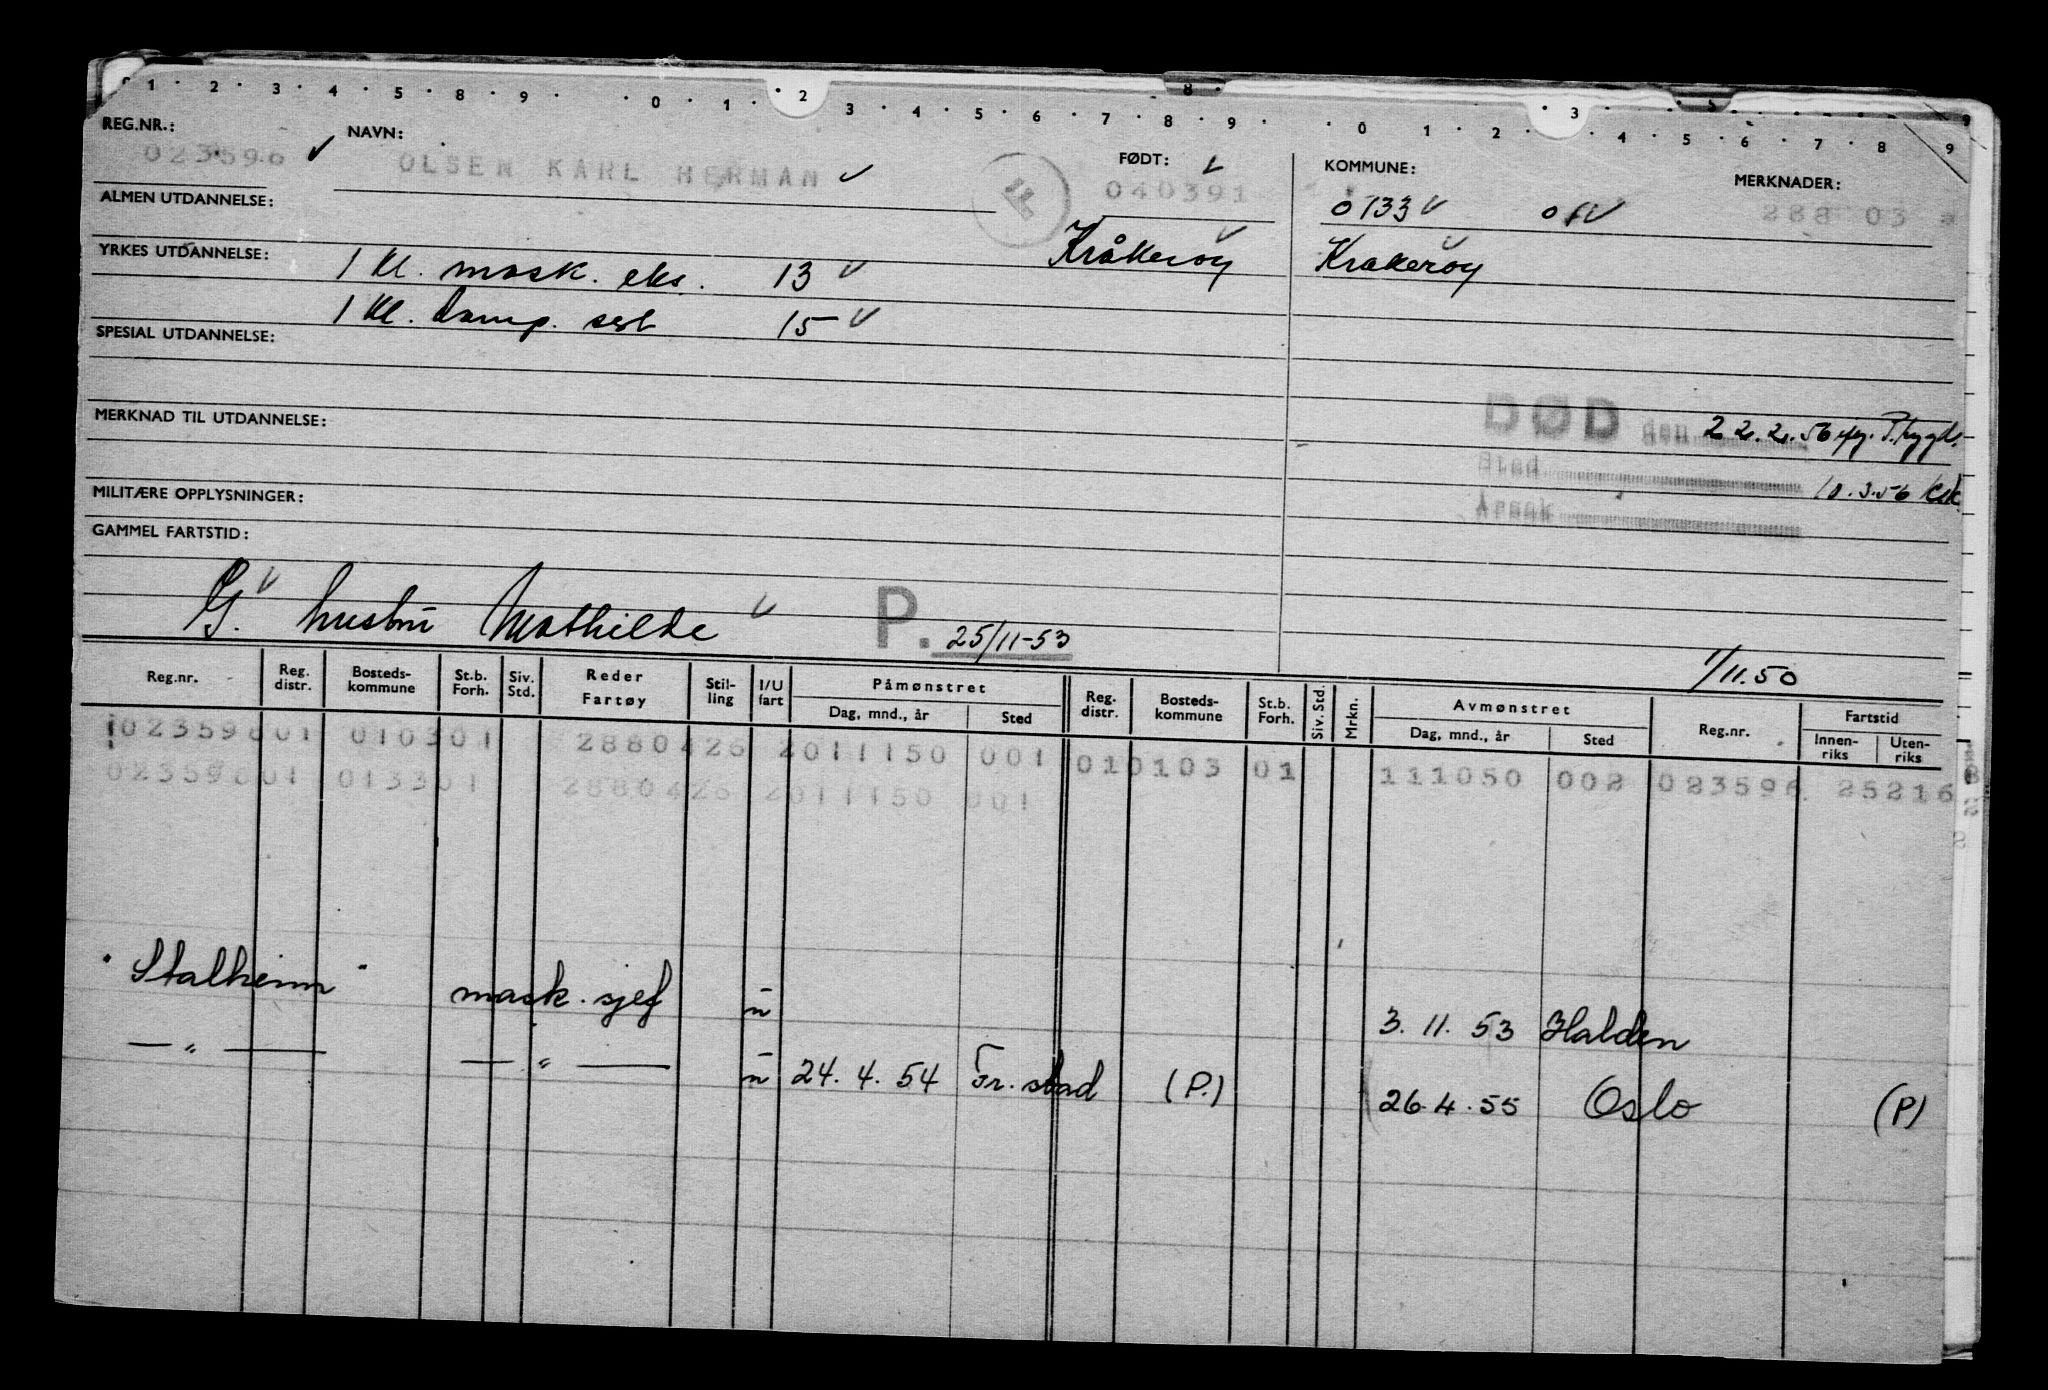 1 · 2 · 3 · 4 · 5 · 8 · 9 · · 0 · 1 · 2 · 3 · 4 · 5 · 6 · 7 · 8 · 9 · · 0 · 1 · 2 · 3 · 4 · 5 · 6 · 7 · 8 · 9
REG.NR.: NAVN: FØDT: KOMMUNE: MERKNADER:
023596 OLSEN KARL HERMAN 040391 0133 288 03
ALMEN UTDANNELSE:
Kråkerøy Krakerøy
YRKES UTDANNELSE: 1 kl. mask. eks. 13
1 kl. damp. sert 15
SPESIAL UTDANNELSE:
MERKNAD TIL UTDANNELSE:
DØD den 22.2.56 P.trygd.
Sted 10.3.56
Årsak
MILITÆRE OPPLYSNINGER:
GAMMEL FARTSTID:
G. hustru Mathilde P. 25/11-53
1/11.50
Reg.nr. Reg. distr. Bosteds-kommune St.b. Forh. Siv. Std. Reder Fartøy Stil-ling I/U fart Påmønstret Dag, mnd., år Sted Reg. distr. Bosteds-kommune St.b. Forh. Siv. Std. Mrkn. Avmønstret Dag, mnd., år Sted Reg.nr. Fartstid Innen-riks Uten-riks
02359601 010301 2880426 2011150 001 010103 01 111050 002 023596 25216
02359601 013301 2880426 2011150 001
"Stalheim" mask. sjef u 3.11.53 Halden
— " — — " — u 24.4.54 Fr.stad (P.) 26.4.55 Oslo (P)